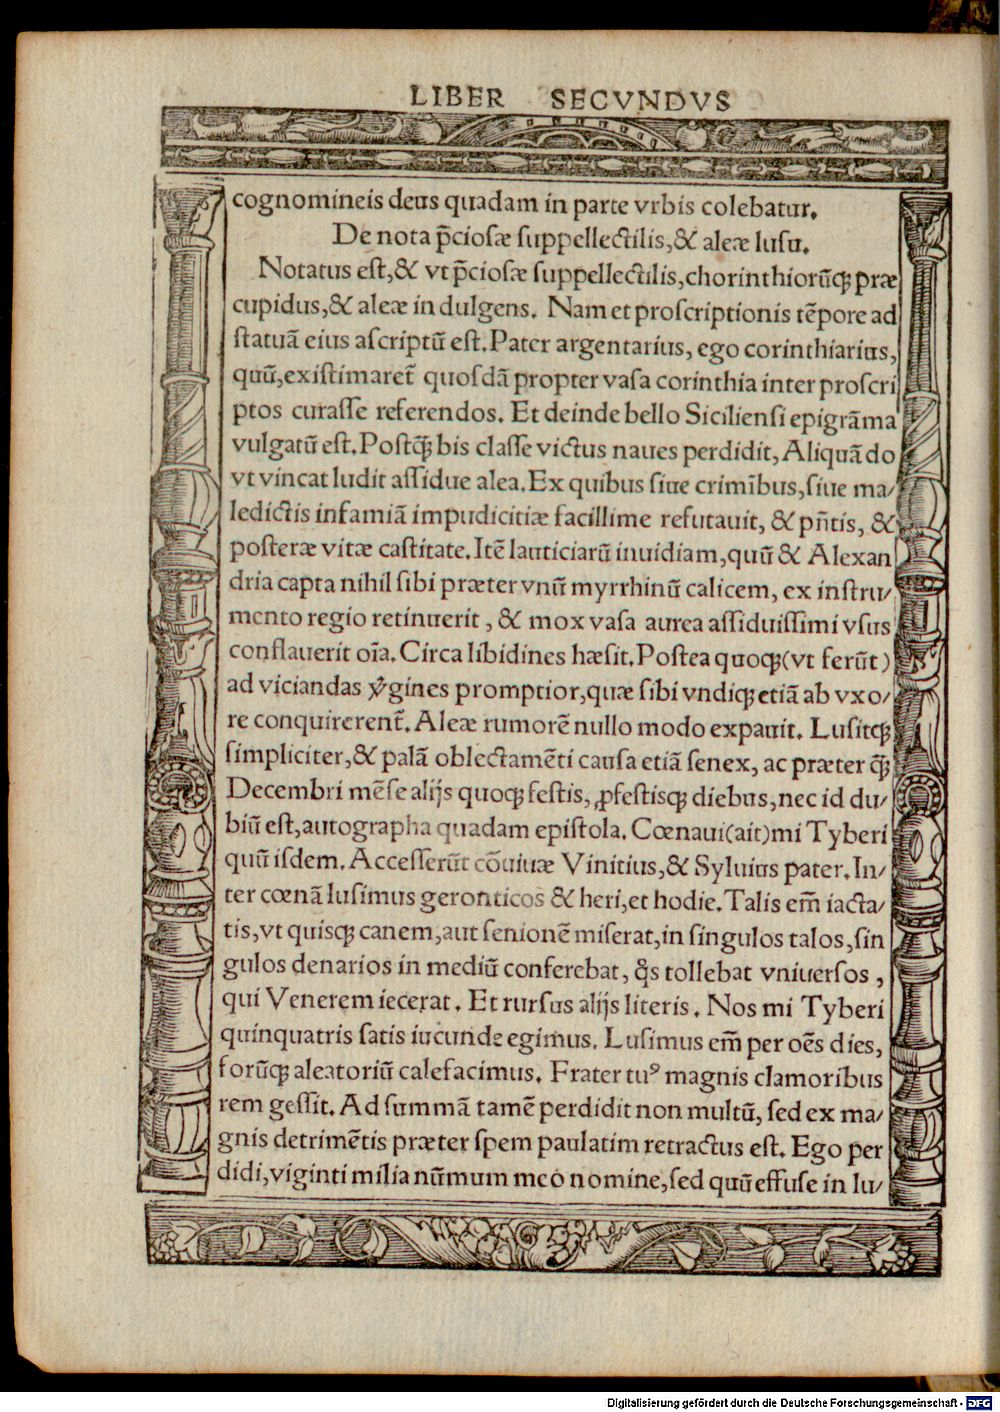 LIBER SECVNDVS
cognomineis deus quadam in parte vrbis colebatur.
De nota p̄ciosæ suppellectilis,& aleæ lusu.
Notatus est,& vt p̄ciosæ suppellectilis,chorinthiorūqꝫ præ
cupidus,& aleæ in dulgens. Nam et proscriptionis tēpore ad
statuā eius ascriptū est.Pater argentarius, ego corinthiarius,
quū,existimaret̄ quosdā propter vasa corinthia inter proscri
ptos curasse referendos. Et deinde bello Siciliensi epigrāma
vulgatū est.Postqꝫ̄ bis classe victus naues perdidit, Aliquādo
vt vincat ludit assidue alea.Ex quibus siue crimībus,siue ma/
ledictis infamiā impudicitiæ facillime refutauit, & pn̄tis, &
posteræ vitæ castitate.Itē lauticiarū inuidiam,quū & Alexan
dria capta nihil sibi præter vnū myrrhinū calicem, ex instru/
mento regio retinuerit , & mox vasa aurea assiduissimi vsus
conflauerit oīa.Circa libidines hæsit.Postea quoqꝫ(vt ferūt)
ad viciandas v̓gines promptior,quæ sibi vndiqꝫ etiā ab vxo/
re conquirerent̄. Aleæ rumorē nullo modo expauit. Lusitqꝫ
simpliciter,& palā oblectamēti causa etiā senex, ac præter qꝫ̄
Decembri mēse alijs quoqꝫ festis, ꝓfestisqꝫ diebus,nec id du/
biū est,autographa quadam epistola. Cœnaui(ait)mi Tyberi
quū isdem. Accesserūt cōuiuæ Vinitius,& Syluius pater.In/
ter cœnā lusimus geronticos & heri,et hodie.Talis em̄ iacta/
tis,vt quisqꝫ canem,aut senionē miserat,in singulos talos,sin
gulos denarios in mediū conferebat, q̊s tollebat vniuersos ,
qui Venerem iecerat. Et rursus alijs literis. Nos mi Tyberi
quinquatris satis iucunde egimus. Lusimus em̄ per oēs dies,
forūqꝫ aleatoriū calefacimus. Frater tuꝰ magnis clamoribus
rem gessit. Ad summā tamē perdidit non multū, sed ex ma/
gnis detrimētis præter spem paulatim retractus est. Ego per
didi,viginti milia nūmum meo nomine,sed quū effuse in lu/
Digitalisierung gefördert durch die Deutsche Forschungsgemeinschaft - DFG